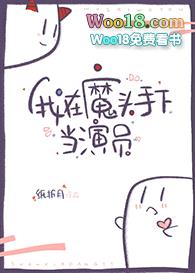 Woo18.com
Woo18免费看书
我在魔头手下
当演员
纸折月